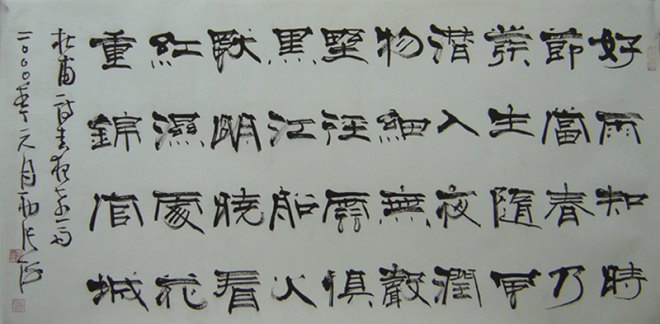 好雨知時
節當春乃
發生隨風
潛入夜潤
物細無聲
野徑雲俱
黑江船火
獨明曉看
紅濕處花
重錦官城
杜甫詩春夜喜雨
二〇〇〇年 月